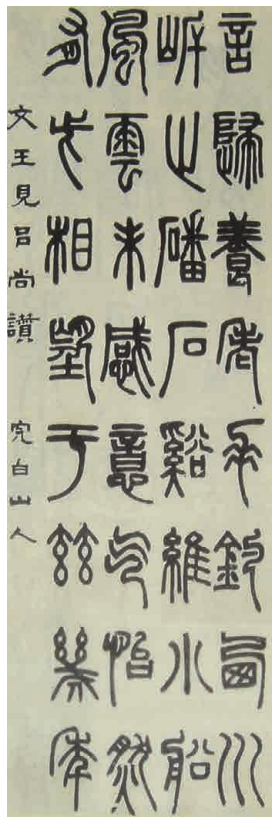 言歸養老垂釣西川
岸止磻石谿維小船
風雲未感意气怡然
有相望于茲幾年
文王見呂尚讚 完白山人